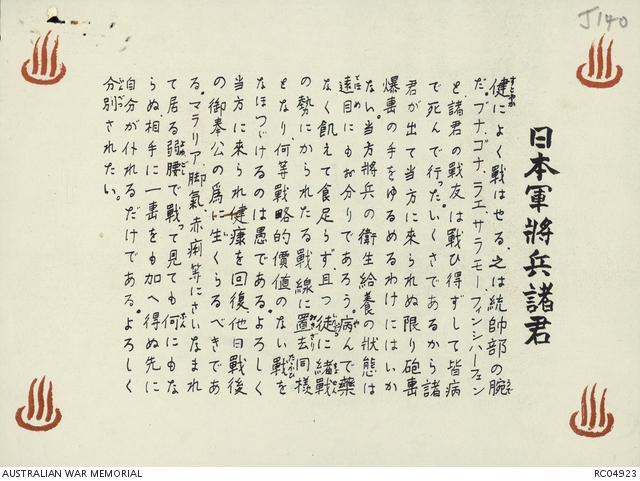 J140
日本軍將兵諸君
健によく戰はせる、之は統帥部の腕
だ。ブナ、ゴナ、ラエ、サラモー、フィンシハーフェン
と諸君の戰友は戰ひ得ずして皆病
で死んで行った。いくさであるから諸
君が出て當方に來られぬ限り砲轟
爆轟の手をゆるめるわけにはいか
ない。当方將兵の衛生給養の狀態は
遠目にもお分りであろう。病んで藥
なく飢えて食足らず、且つ徒に緒戰
の勢にかられたる戰線に置去同様
となり、何等戰略的價値のない戰を
なほつゞけるのは愚である。よろしく
当方に来られ健康を回復、他日戰後
の御奉公の爲に生くらるべきであ
る。マラリア、脚氣、赤痢等にさいなまれ
て居る弱腰で戰って見ても何にもな
らぬ。相手に一轟をも加へ得ぬ先に
自分が仆れるだけである。よろしく
分別されたい。
AUSTRALIAN WAR MEMORIAL
RC04923